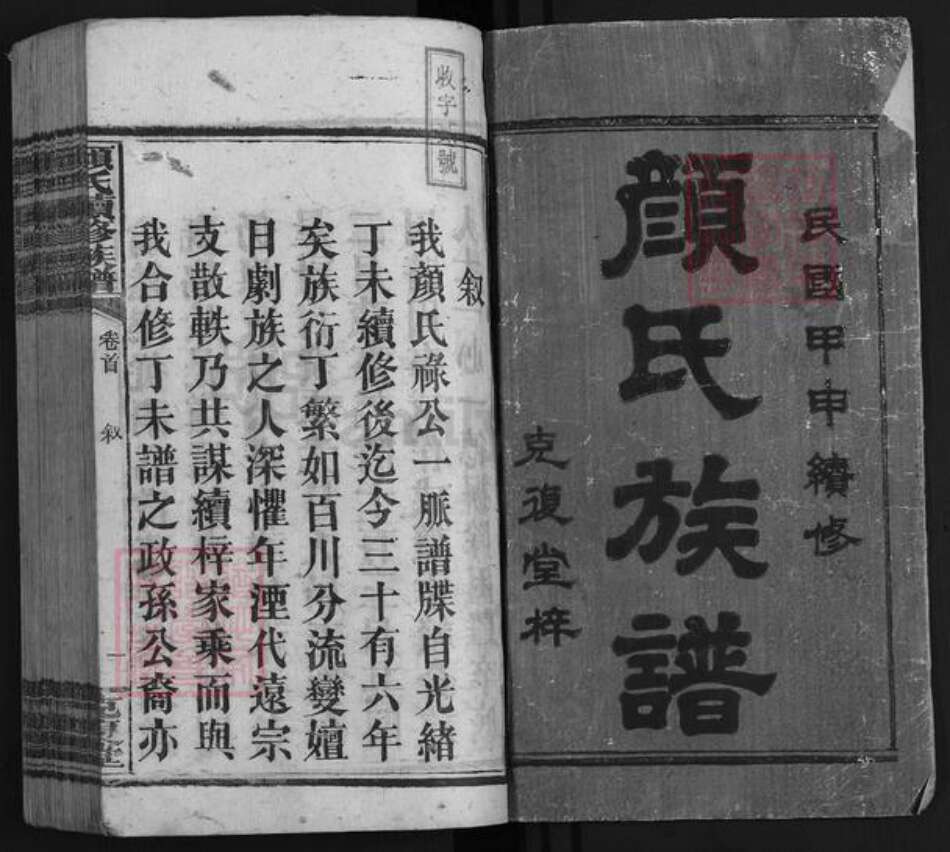 民國甲申續修
顏氏族譜
克復堂梓
敘
我顏氏祿公一脈譜牒自光緒
丁未續修後迄今三十有六年
矣族衍丁繁如百川分流變嬗
日劇族之人深懼年湮代遠宗
支散軼乃共謀續梓家乘而與
我合修丁未譜之政孫公裔亦
收字號
顏氏續修族譜
卷首
敘
一
克復堂